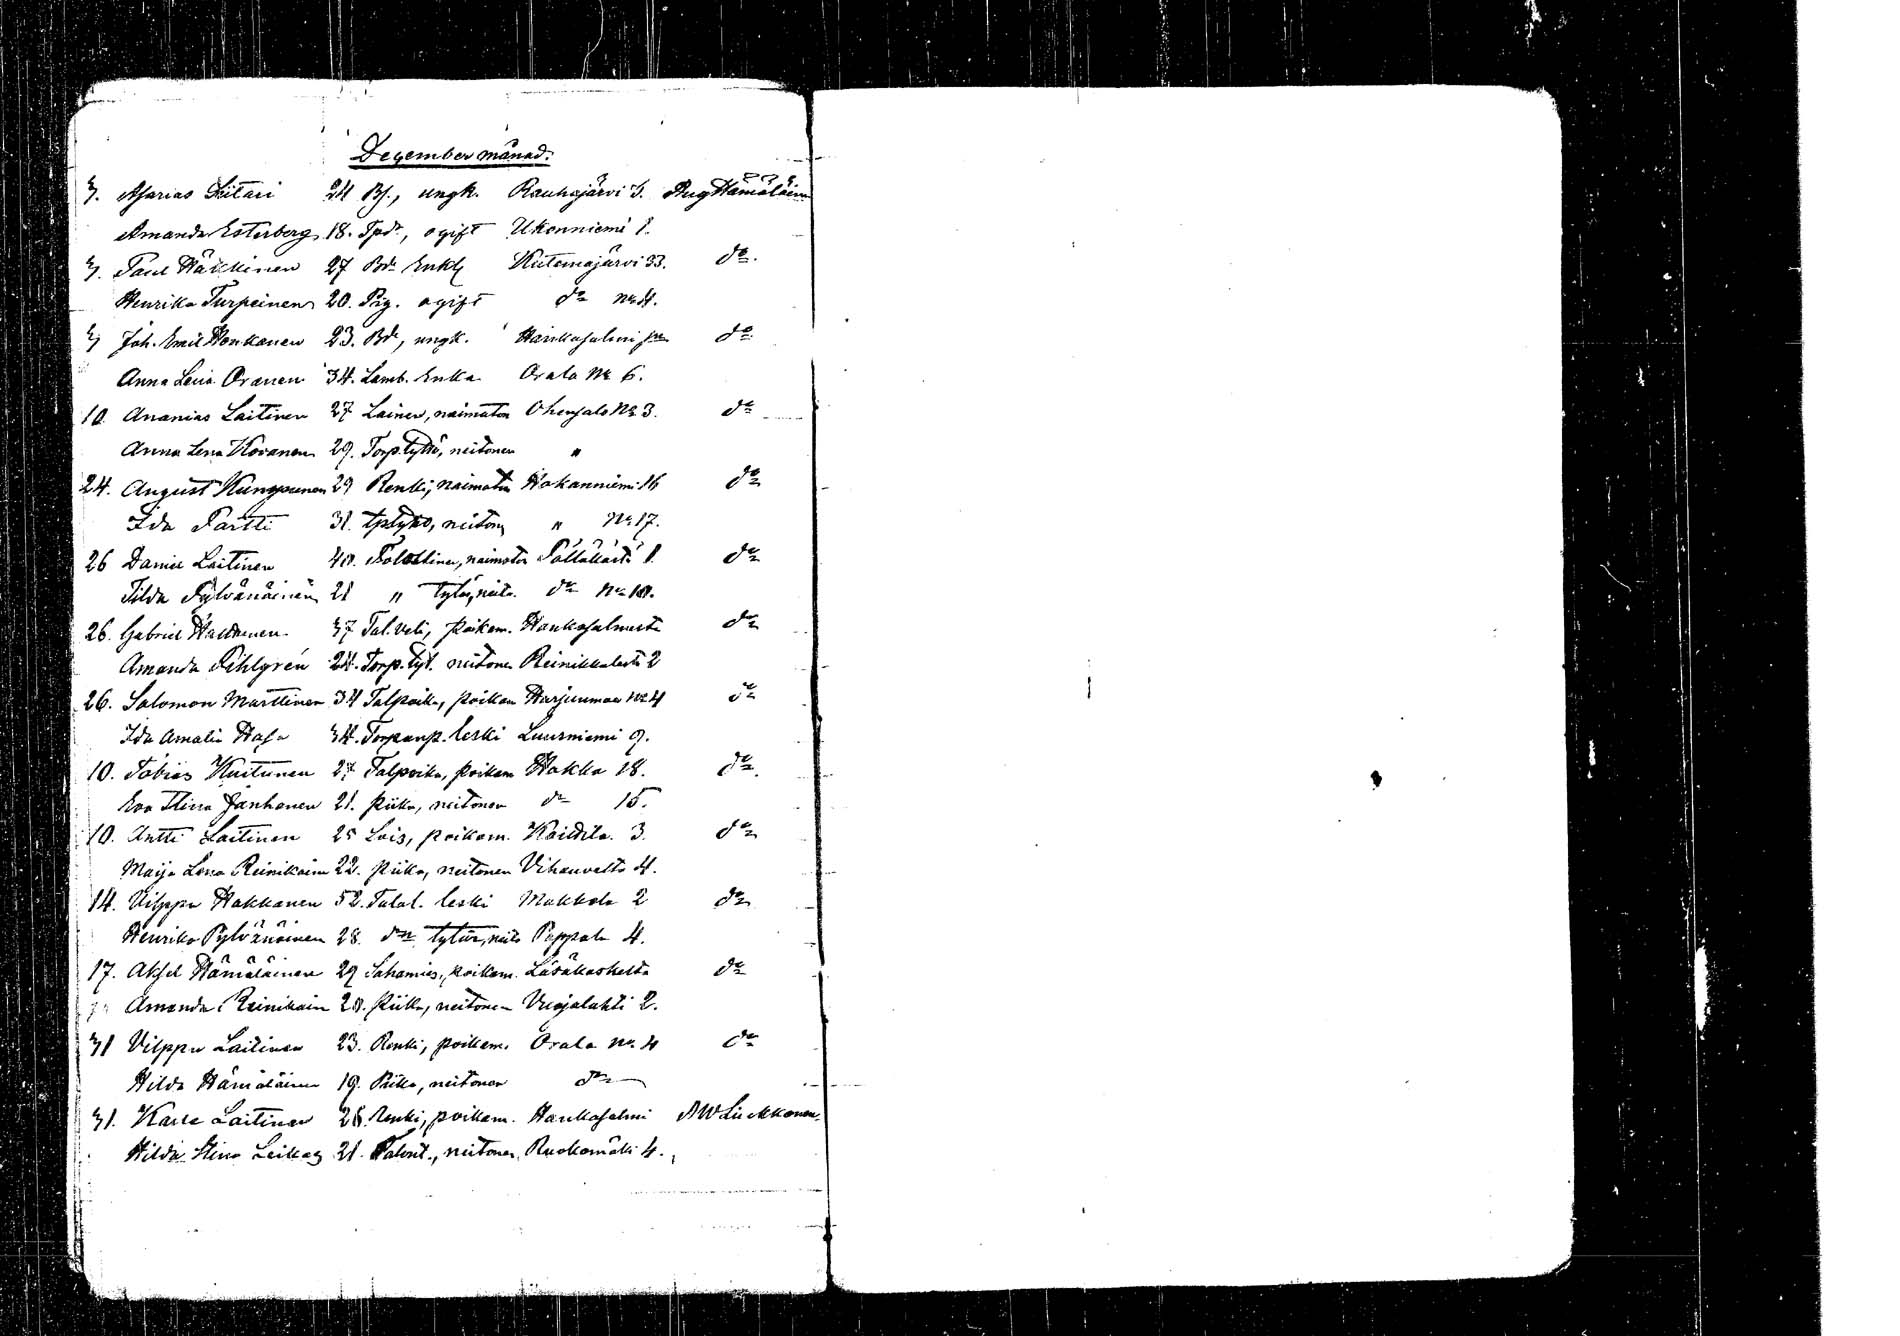 December månad.
3. Asarias Liitari 24 Bs., ungk. Rauhajärvi 5. Aug Hämäläinen
Amanda Esterberg 18. Tpdr, ogift Ukonniemi 1.
3. Paul Häkkinen 27 Bdr Enkl Kutemajärvi 33. do.
Henrika Turpeinen 20. Pig. ogift do No 4.
3 Joh. Emil Honkanen 23. Bdr, ungk. Hankasalmi do
Anna Lena Oranen 34. Lamb. Enka Orala No 6.
10. Ananias Laitinen 27 Loinen, naimaton No 3. do
Anna Lena Kovanen 29. Torp.tyttö, neitonen "
24. August Kumpunen 29 Renki, naimaton Hokanniemi 16 do
Ida Partti 31. tptytö, neitonen " No 17.
26 Daniel Laitinen 40. naimaton 1. do
Tilda Pylvänäinen 21 " tytär, neito. do No 10.
26. Gabriel 37 Tal. veli, poikam. Hankasalmesta do
Amanda Pihlgrén 24. Torp. tyt. neitonen Reinikkalasta 2
26. Salomon Marttinen 34 Talpoika, poikam Harjunmaa No 4 do
Ida Amalia Hasa 34. Torpanp. leski Luusniemi 9.
10. Tobias Kuitunen 27 Talpoika, poikam Hokka 18. do.
Eva Stina Janhonen 21. piika, neitonen do 15.
10. Antti Laitinen 25 Lois, poikam. 3. do
Maija Lena Reinikain 22. piika, neitonen Vihanvalta 4.
14. Vilppu Hakkanen 52. Talol. leski Makkola 2 do
Henrika Pylvänäinen 28. do tytär, neito Pappala 4.
17. Aksel Hämäläinen 29 Sahamies, poikam. Läsäkoskelta do
Amanda Reinikain 20. piika, neitonen Vuojalahti 2.
31 Vilppu Laitinen 23. Renki, poikam. Orala No. 4 do
Hilda Hämäläinen 19. Piika, neitonen do
31. Kalle Laitinen 28. Renki, poikam. Hankasalmi A W Liukkonen.
Hilda Stina Leikas 21. Talont., neitonen, Ruokomäki 4.